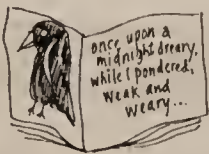 once upon a
midnight dreary,
while I pondered,
weak and
weary...